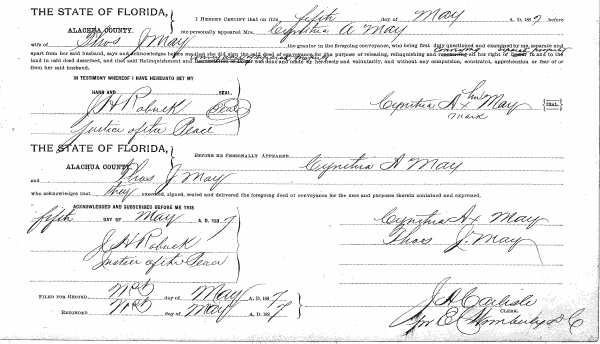 THE STATE OF FLORIDA,
ALACHUA COUNTY.
I HEREBY CERTIFY that on this fifth day of May A. D. 1887 before
me personally appeared Mrs Cynthia A May
wife of Thos J May the grantor in the foregoing conveyance, who being first duly questioned and examined by me, separate and
apart from her said husband, says and acknowledges before me that she did sign the said deed of conveyance for the purpose of releasing, relinquishing and her right of to and in
the land in said deed described, and that said Relinquishment and was done and made by her freely and voluntarily, and without any compulsion, constraint, apprehension or fear of or
from her said husband.
IN TESTIMONY WHEREOF I HAVE HEREUNTO SET MY
HAND AND SEAL.
J H Robuck Seal
Justice of the Peace
Cynthia A x May SEAL.
her
mark
THE STATE OF FLORIDA,
ALACHUA COUNTY.
BEFORE ME PERSONALLY APPEARED Cynthia A May
and Thos J May
who acknowledges that they executed, signed, sealed and delivered the foregoing deed of conveyance for the uses and purposes therein contained and expressed,
ACKNOWLEDGED AND SUBSCRIBED BEFORE ME THIS
fifth DAY OF May A. D. 1887
J H Robuck
Justice of the Peace
Cynthia A x May
Thos J. May
FILED FOR RECORD day of May A. D. 1887
RECORDED day of May A. D. 1887
J A Carlisle
CLERK.
Per E C Wimberly D C